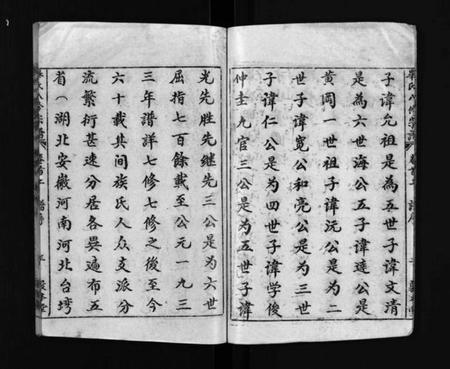 子諱允祖是為五世子諱文清
是為六世海公五子諱達公是
黄岡一世祖子諱沅公是為二
世子諱寬公和亮公是為三世
子諱仁公是為四世子諱學俊
仲圭九官三公是为五世子諱
光先胜先继先三公是为六世
屈指七百餘載至公元一九三
三年譜洋七修七修之後至今
六十載其间族氏人众支派分
流繁衍甚速分居各異遍布五
省（湖北安徽河南河北台塆